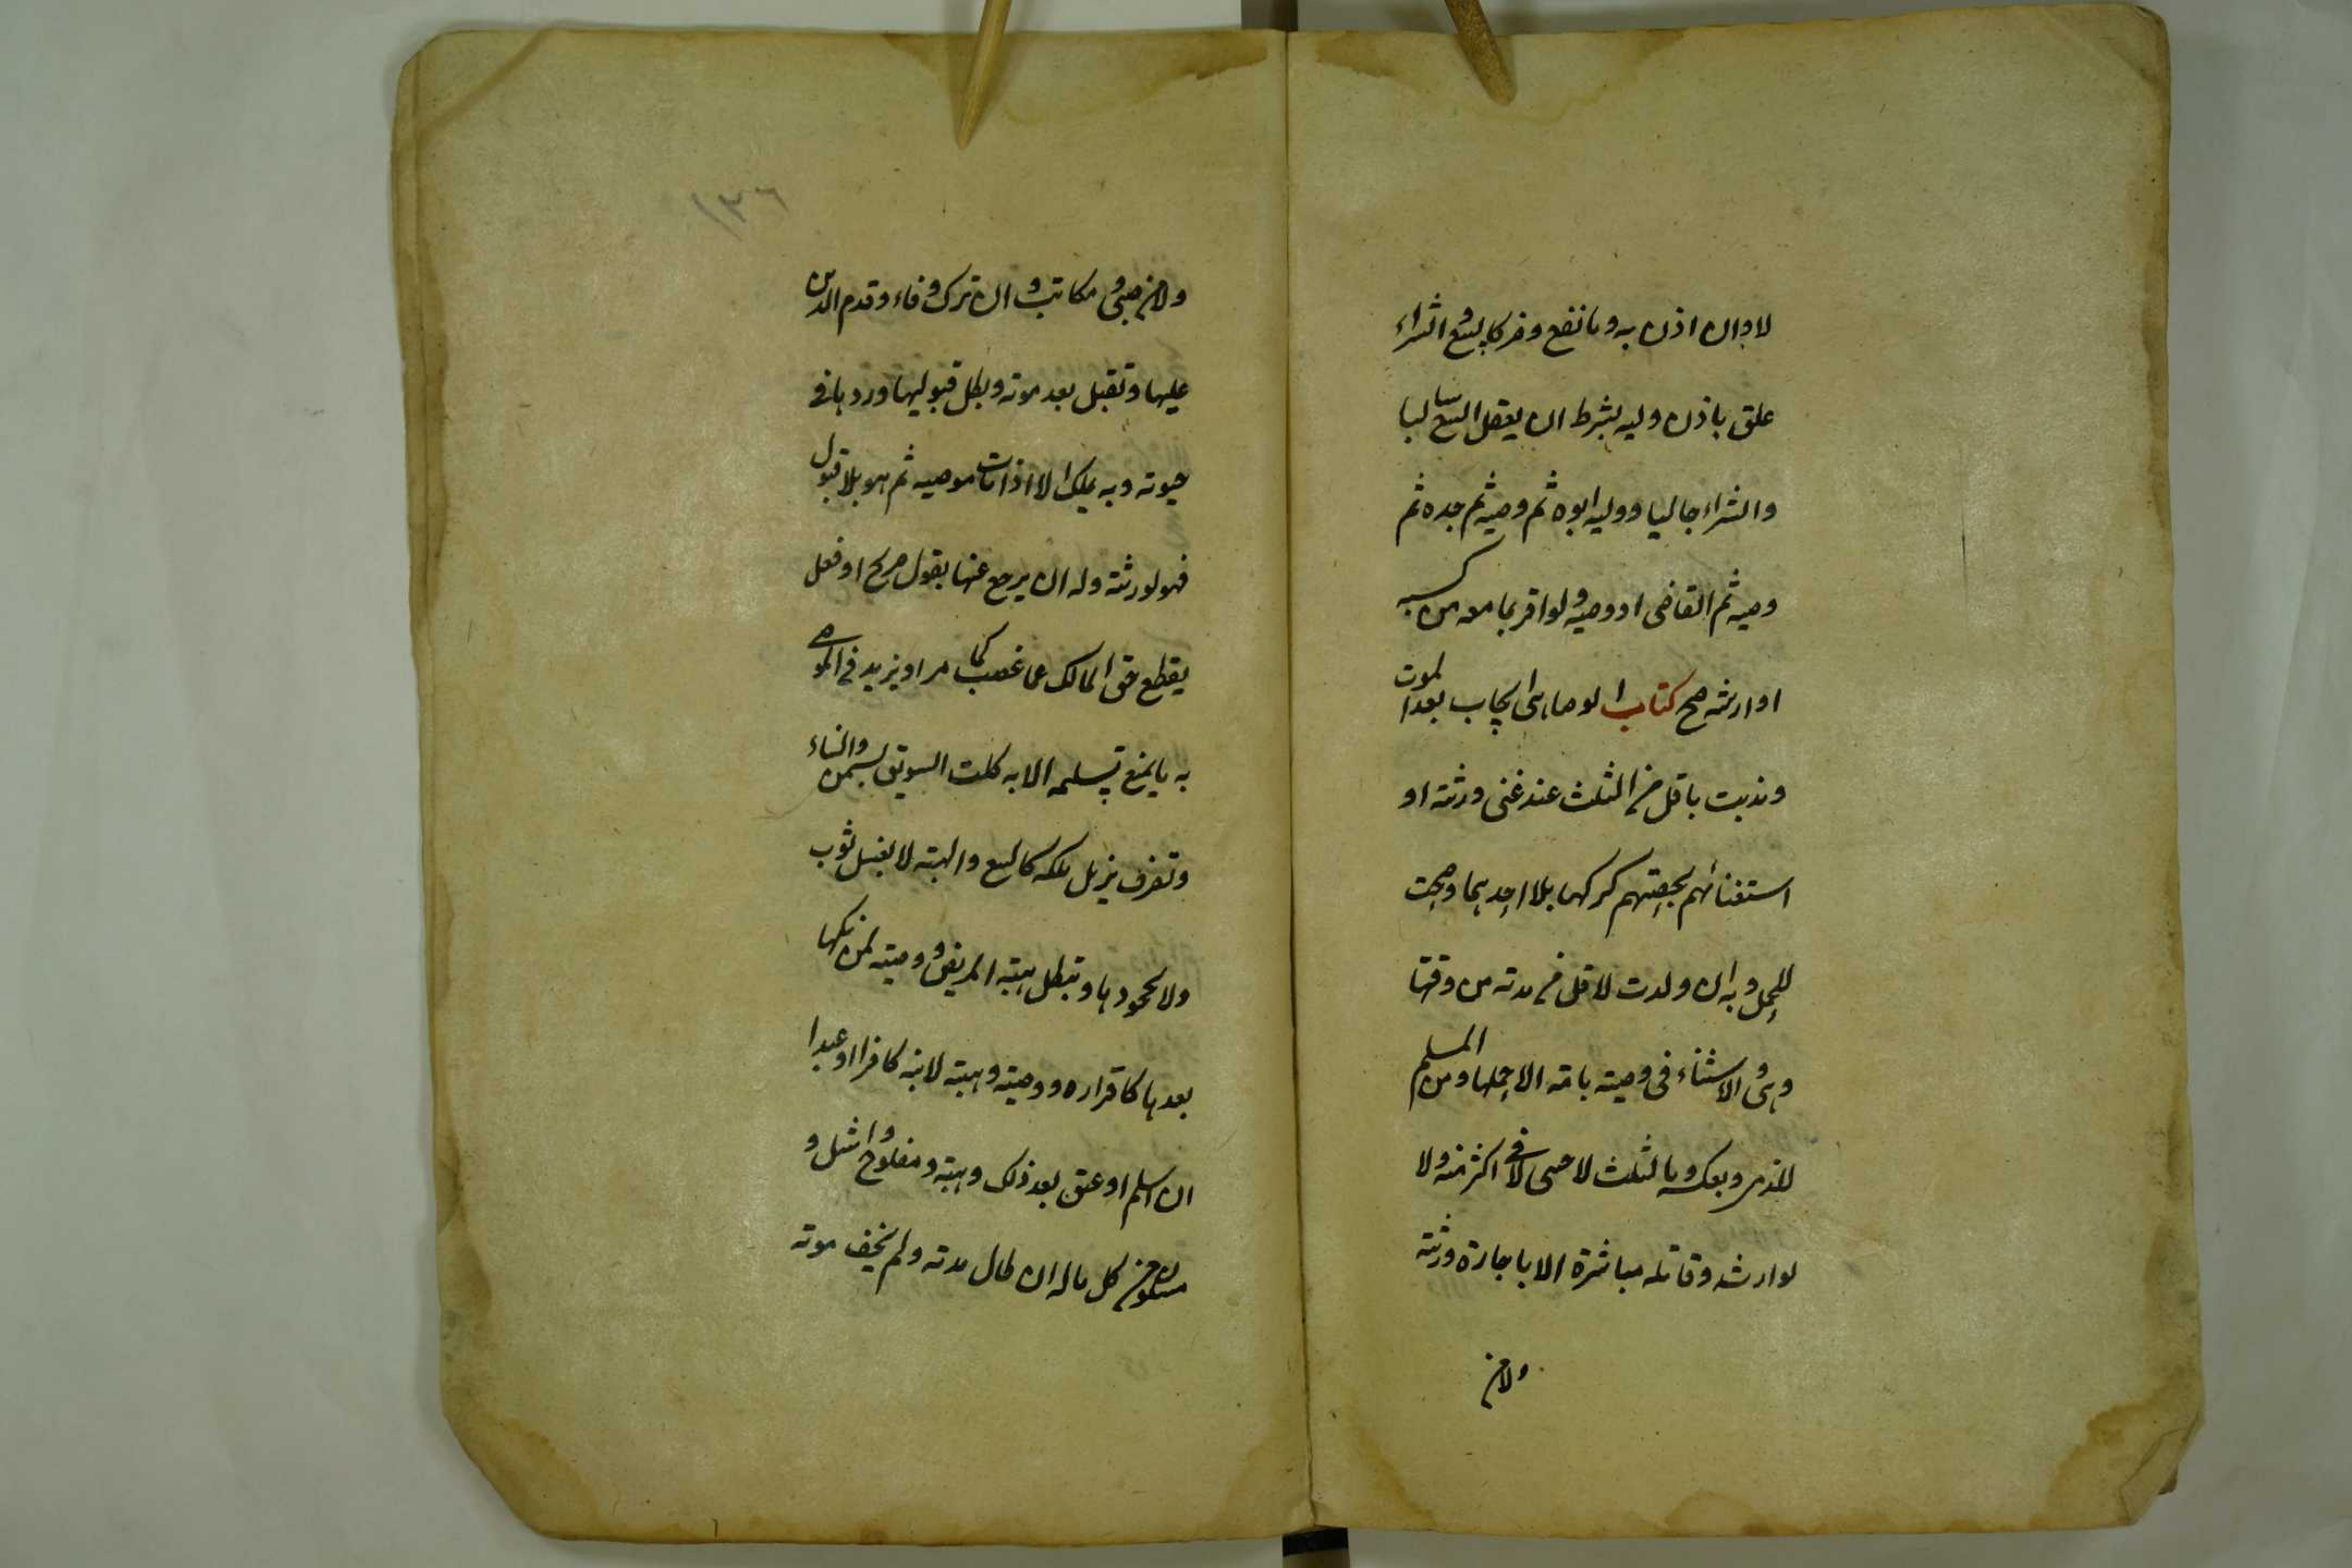 لا وان اذن به وما نفع وضر كالبيع والشراء
علق باذن وليه بشرط ان يعقل البيع سالبا
والشراء جالبا ووليه ابوه ثم وصيه ثم جده ثم
وصيه ثم القاضى او وصيه ولو اقر بما معه من كسبه
او ارثه صح كتاب الوصايا هى ايجاب بعد الموت
وندبت باقل من الثلث عند غنى ورثته او
استغنائهم بحصتهم كتركها بلا احدهما وصحت
للحمل وبه ان ولدت لاقل من مدته من وقتها
وهى والاستثناء فى وصيته بامة الا حملها ومن المسلم
للذمى وبعكسه وبالثلث لاجنبى لا فى اكثر منه ولا
لوارثه وقاتله مباشرة الا باجازة ورثته
ولا من
١٣٦
ولا من صبى ومكاتب وان ترك وفاء وقدم الدين
عليها وتقبل بعد موته وبطل قبولها وردها فى
حيوته وبه يملك الا اذا مات موصيه ثم هو بلا قبول
فهو لورثته وله ان يرجع عنها بقول صريح او فعل
يقطع حق المالك عما غصب كما مر او يزيد فى الموصى
به ما يمنع تسليمه الا به كلت السويق بسمن والبناء
وتصرف يزيل ملكه كالبيع والهبة لا بغسل ثوب
ولا بجحودها وتبطل هبة المريض ووصيته لمن نكحها
بعدها كاقراره ووصيته وهبته لابنه كافرا او عبدا
ان اسلم او عتق بعد ذلك وهبة مفلوج واشل و
مسلول من كل ماله ان طال مدته ولم يخف موته